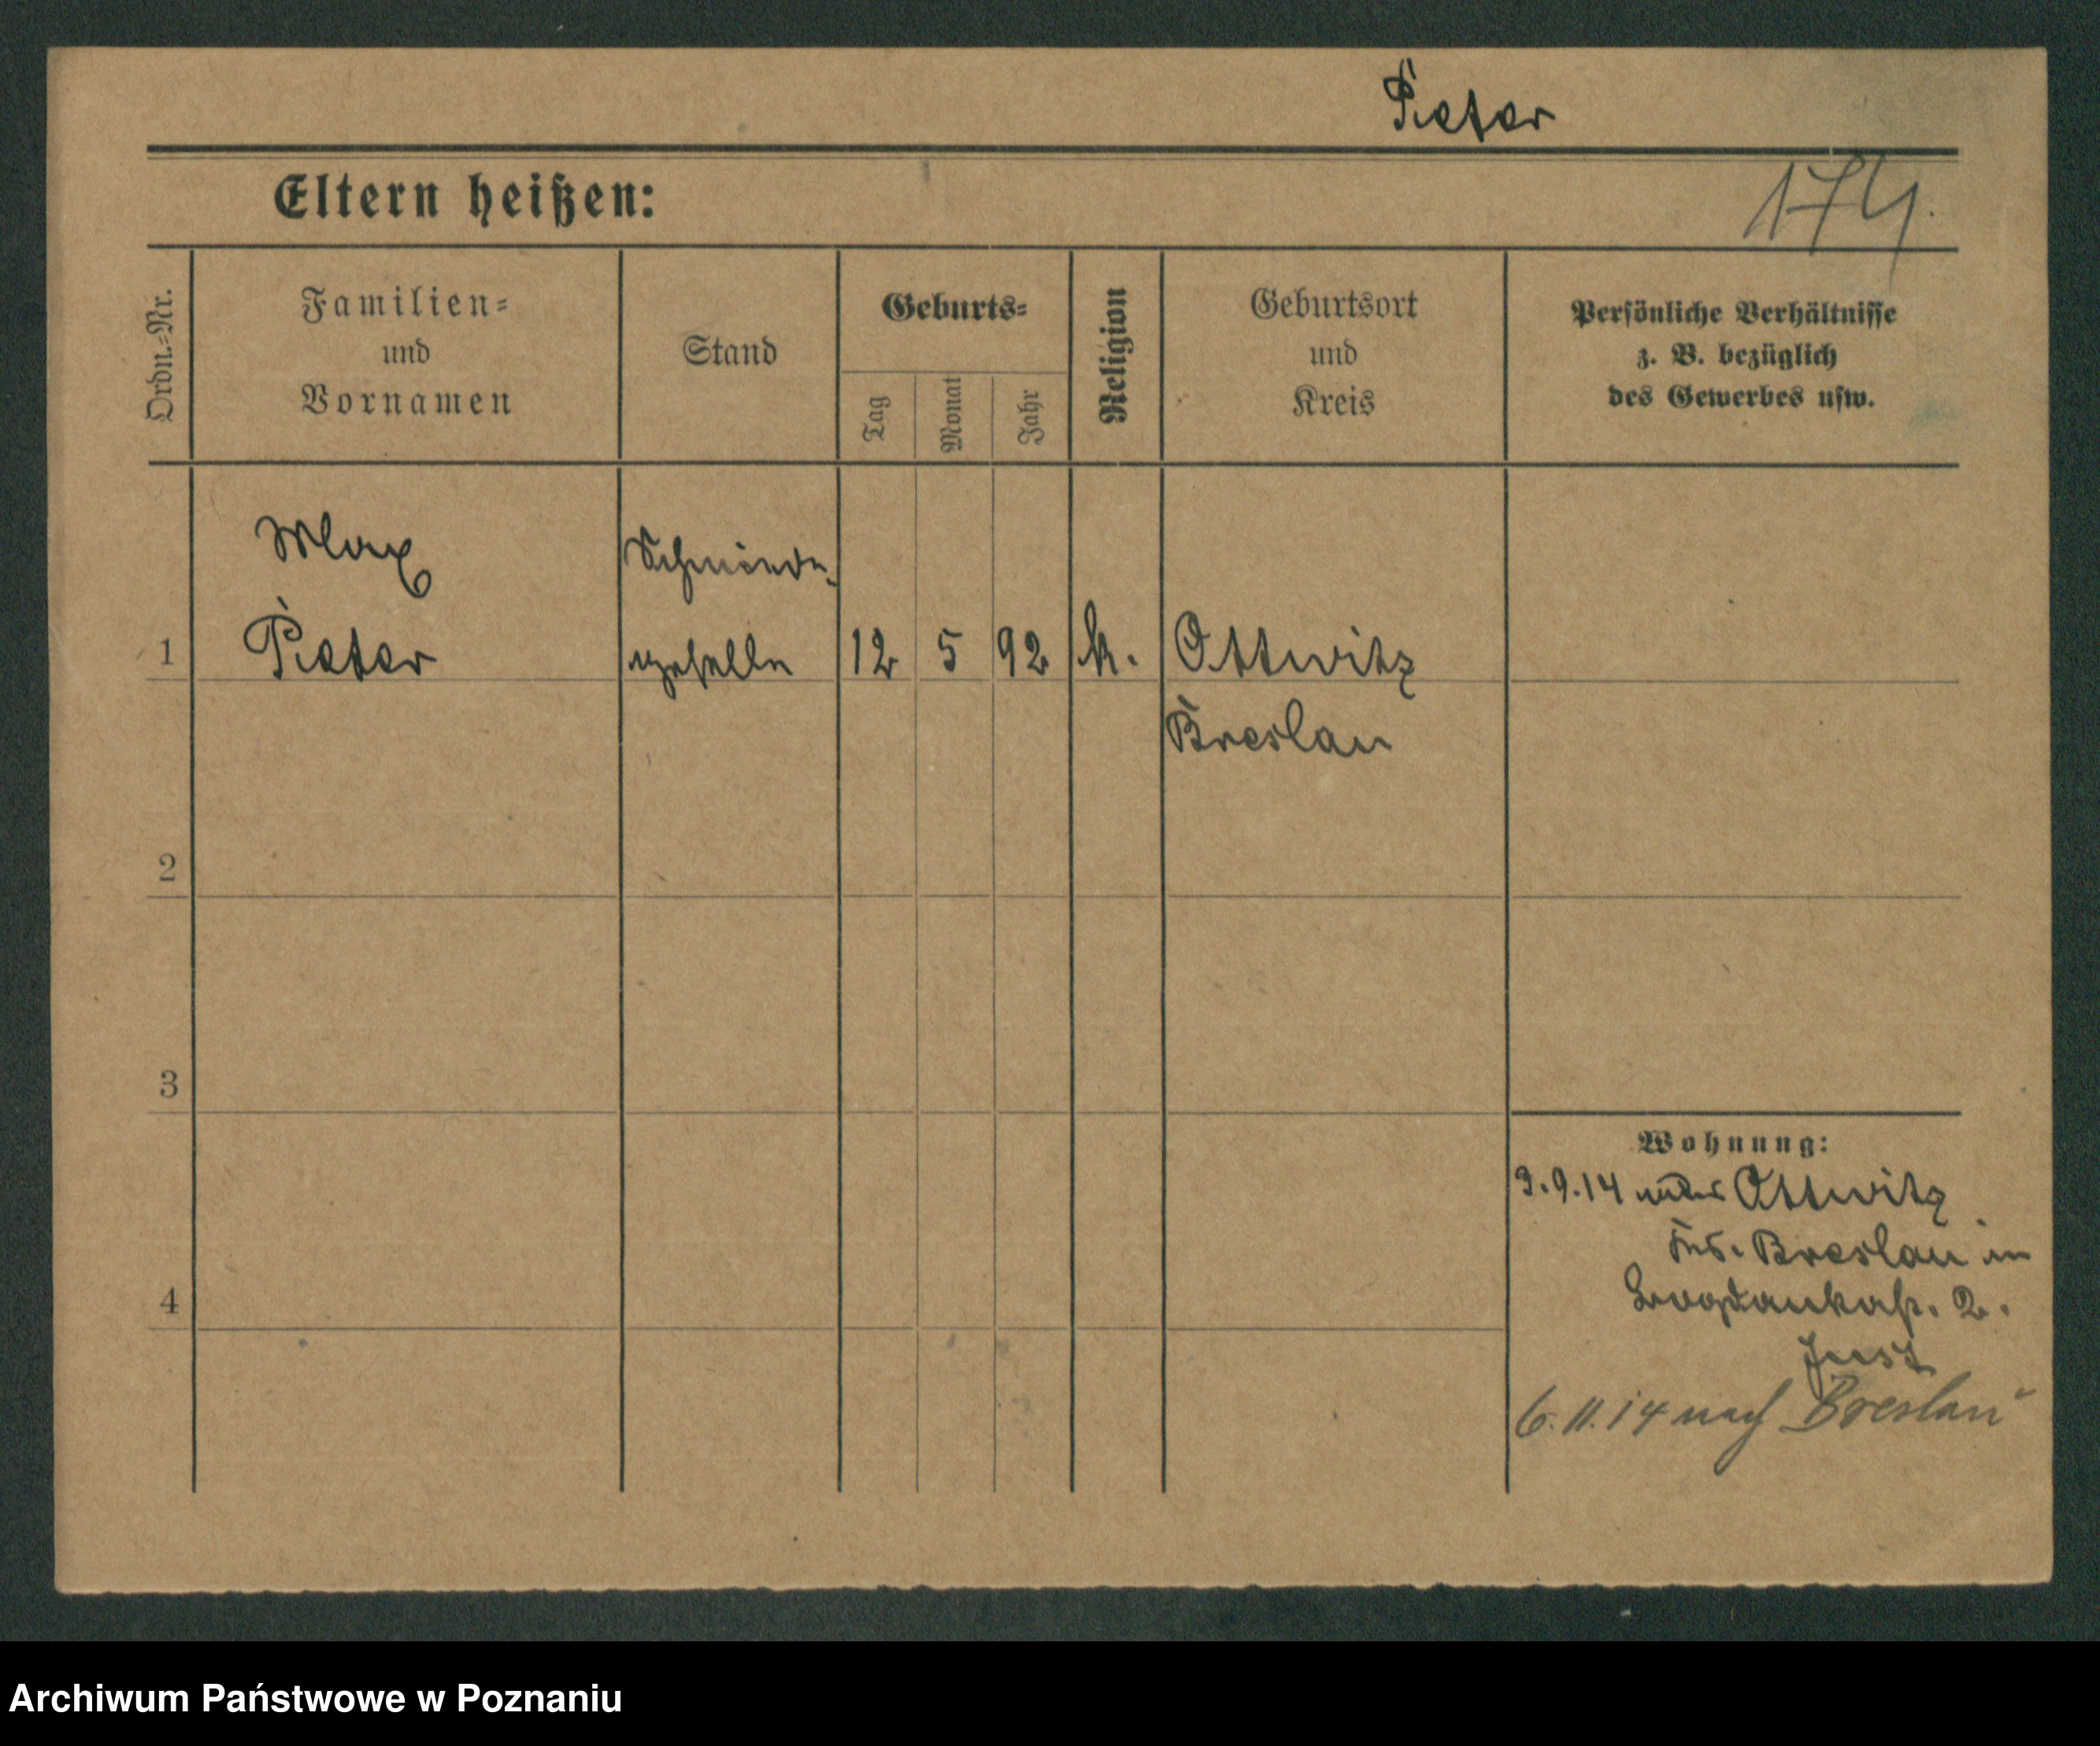 Pieter
Eltern heißen:
174.
Ordn.-Nr.
Familien-
und
Vornamen
Stand
Geburts-
Tag
Monat
Jahr
Religion
Geburtsort
und
Kreis
Persönliche Verhältnisse
z. B. bezüglich
des Gewerbes usw.
Max
Schmiede-
1 Pieter geselle 12 5 92 k. Ottwitz
Breslau
2
3
4
Wohnung:
9.14 Ottwitz
Breslau in
Bogdankastr. 2.
6.11.14 nach Breslau
Archiwum Państwowe w Poznaniu